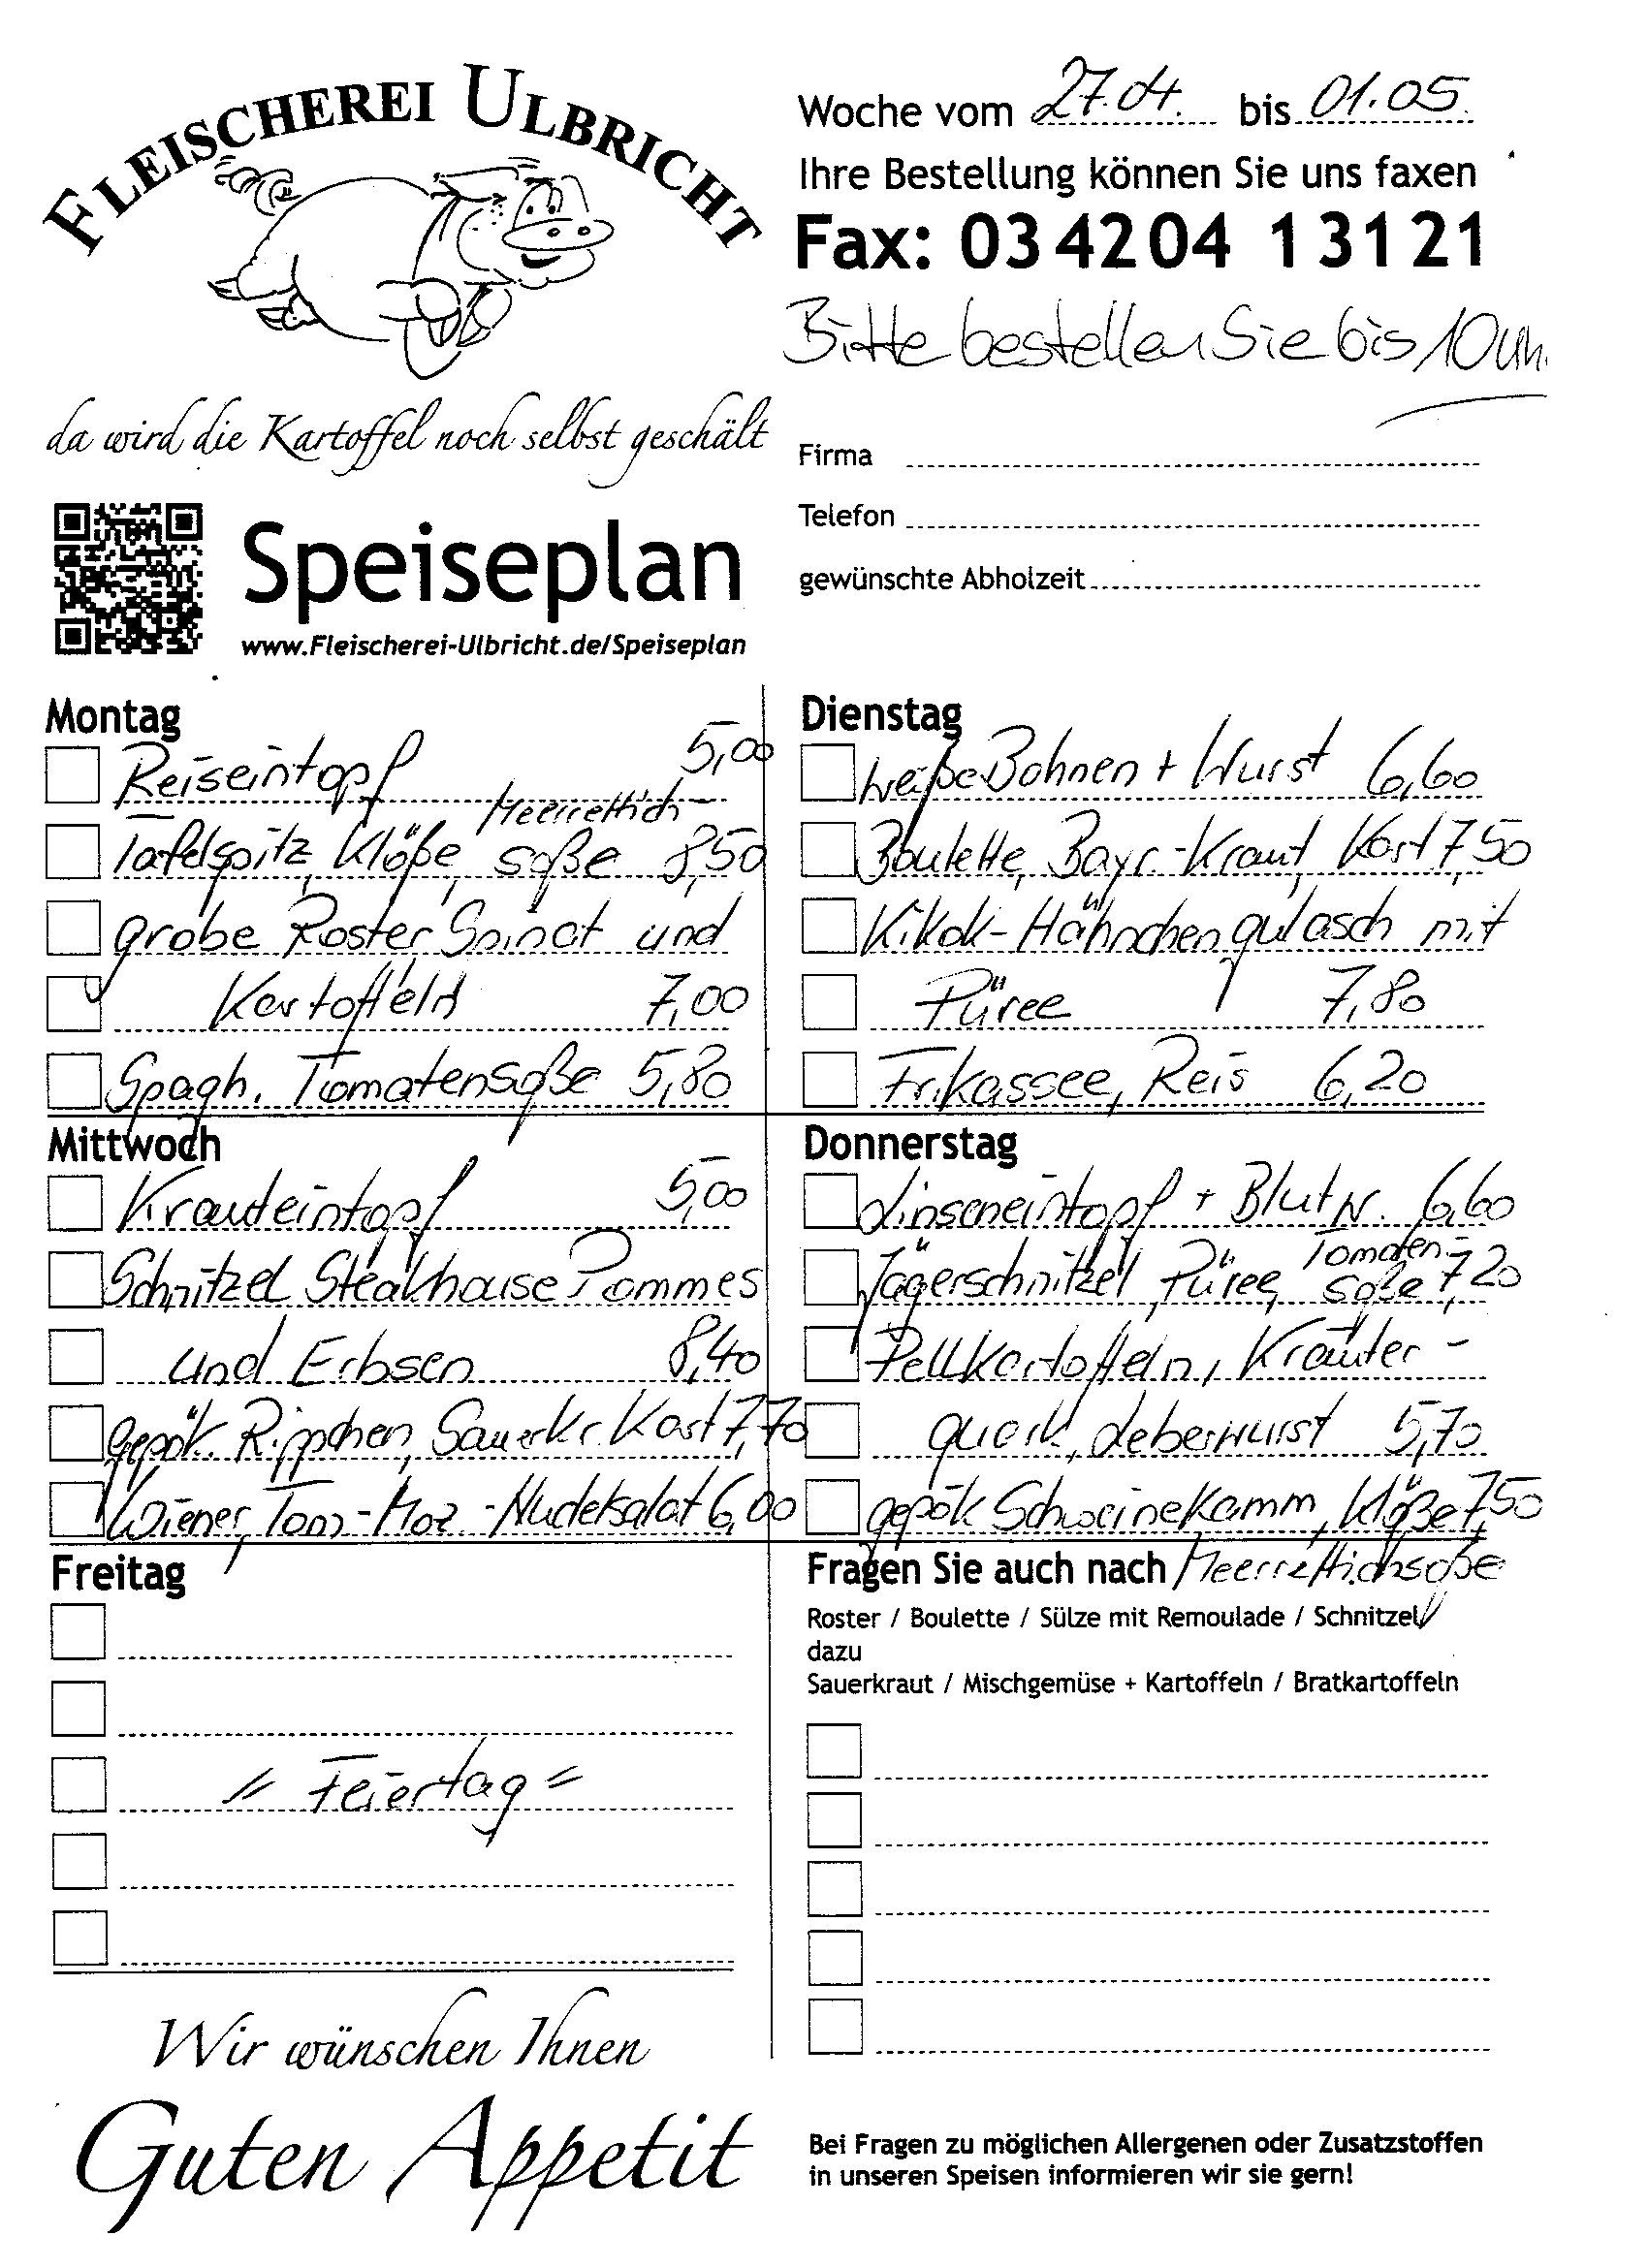 FLEISCHEREI ULBRICHT
da wird die Kartoffel noch selbst geschält
Speiseplan
www.Fleischerei-Ulbricht.de/Speiseplan
Woche vom 27.04. bis 01.05.
Ihre Bestellung können Sie uns faxen
Fax: 034204 13121
Bitte bestellen Sie bis 10 Uhr.
Firma
Telefon
gewünschte Abholzeit
Montag
Reiseintopf 5,00
Meerrettich-
Tafelspitz, Klöße, soße 8,50
grobe Roster Spinat und
Kartoffeln 7,00
Spagh. Tomatensoße 5,80
Dienstag
weiße Bohnen + Wurst 6,60
Boulette, Bayr.-Kraut, Kart 7,50
Kikok-Hähnchengulasch mit
Püree 7,80
Frikassee, Reis 6,20
Mittwoch
Krauteintopf 5,00
Schnitzel Steakhouse Pommes
und Erbsen 8,40
gepök. Rippchen, Sauerkr. Kart 7,70
Wiener, Tom-Moz-Nudelsalat 6,00
Donnerstag
Linseneintopf + Blutw. 6,60
Tomaten-
Jägerschnitzel, Püree, soße 7,20
Pellkartoffeln, Kräuter-
quark, Leberwurst 5,70
gepök Schweinekamm, Klöße 7,50
Meerrettichsoße
Freitag
= Feiertag =
Fragen Sie auch nach
Roster / Boulette / Sülze mit Remoulade / Schnitzel
dazu
Sauerkraut / Mischgemüse + Kartoffeln / Bratkartoffeln
Wir wünschen Ihnen
Guten Appetit
Bei Fragen zu möglichen Allergenen oder Zusatzstoffen
in unseren Speisen informieren wir sie gern!